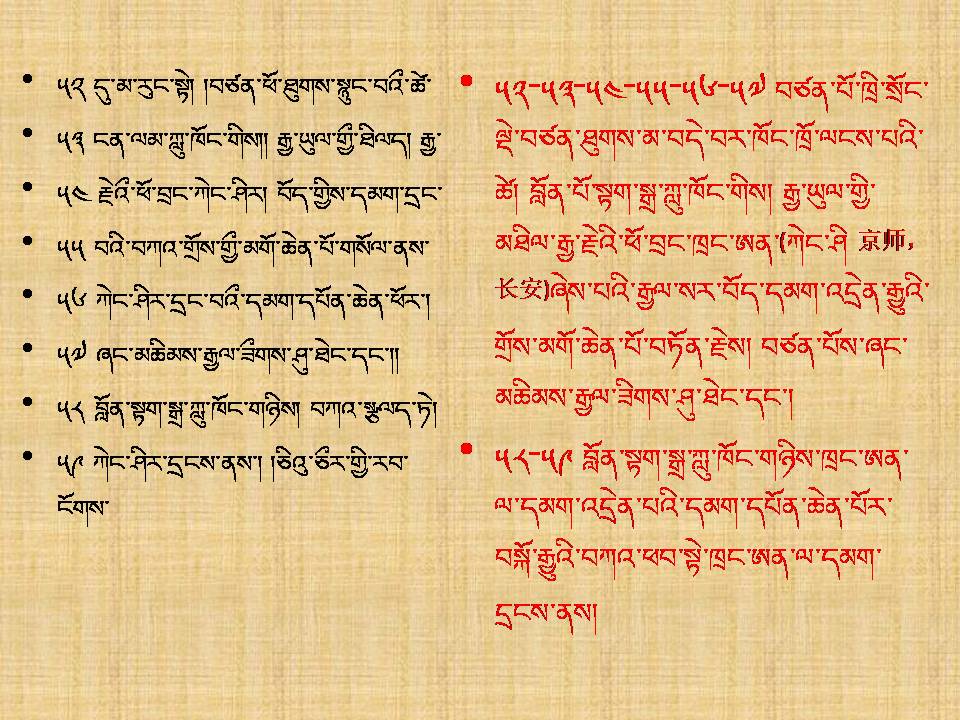 • ༥༢ དུ་མ་རུང་སྟེ། །བཙན་ཕོ་ཐུགས་སྙུང་བའིི་ཚེ་
• ༥༣ ངན་ལམ་ཀླུ་ཁོང་གིས།། རྒྱ་ཡུལ་གྱི་ཐིལད། རྒྱ་
• ༥༤ རྗེའིི་ཕོ་བྲང་ཀེང་ཤིར། བོད་གྱིས་དམག་དྲང་
• ༥༥ བའི་བཀའ་གྲོས་གྱི་མགོ་ཆེན་པོ་གསོལ་ནས་
• ༥༦ ཀེང་ཤིར་དྲང་བའིི་དམག་དཔོན་ཆེན་ཕོར་།
• ༥༧ ཞང་མཆིམས་རྒྱལ་ཟིགས་ཤུ་ཐེང་དང་།།
• ༥༨ བློན་སྟག་སྒྲ་ཀླུ་ཁོང་གཉིས། བཀའ་སྩལད་ཏེ།
• ༥༩ ཀེང་ཤིར་དྲངས་ནས་། །ཅིའུ་ཅིར་གྱི་རབ་
ངོགས་
• ༥༢-༥༣-༥༤-༥༥-༥༦-༥༧ བཙན་པོ་ཁྲི་སྲོང་
ལྡེ་བཙན་ཐུགས་མ་བདེ་བར་ཁོང་ཁྲོ་ལངས་པའི་
ཚེ། བློན་པོ་སྟག་སྒྲ་ཀླུ་ཁོང་གིས། རྒྱ་ཡུལ་གྱི་
མཐིལ་རྒྱ་རྗེའི་ཕོ་བྲང་ཁྲང་ཨན་(ཀེང་ཤི 京师，
长安)ཞེས་པའི་རྒྱལ་སར་བོད་དམག་འདྲེན་རྒྱུའི་
གྲོས་མགོ་ཆེན་པོ་བཏོན་རྗེས། བཙན་པོས་ཞང་
མཆིམས་རྒྱལ་ཟིགས་ཤུ་ཐེང་དང་།
• ༥༨-༥༩ བློན་སྟག་སྒྲ་ཀླུ་ཁོང་གཉིས་ཁྲང་ཨན་
ལ་དམག་འདྲེན་པའི་དམག་དཔོན་ཆེན་པོར་
བསྐོ་རྒྱུའི་བཀའ་ཕབ་སྟེ་ཁྲང་ཨན་ལ་དམག་
དྲངས་ནས།